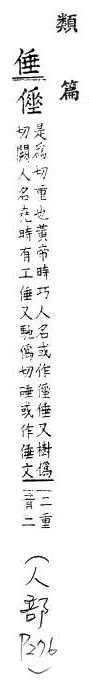 類篇
倕
是為切重也黃帝時巧人名或作倕又樹偽
切闕人名堯時有工倕又馳偽切或作倕文
二重
音二
（人部
P276）